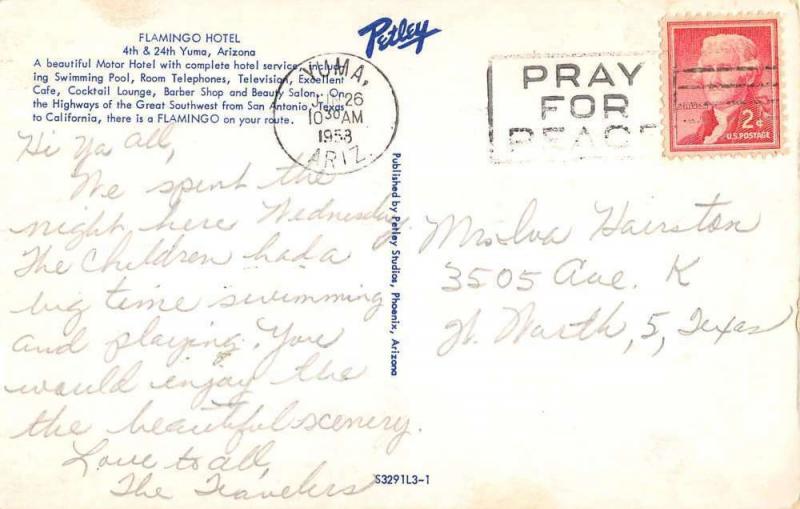 FLAMINGO HOTEL
4th & 24th Yuma, Arizona
A beautiful Motor Hotel with complete hotel service, includ-
ing Swimming Pool, Room Telephones, Television, Excellent
Cafe, Cocktail Lounge, Barber Shop and Beauty Salon. On
the Highways of the Great Southwest from San Antonio, Texas
to California, there is a FLAMINGO on your route.
Petley
YUMA,
26
10 30 AM
1958
ARIZ.
PRAY
FOR
PEACE
2¢
U.S. POSTAGE
Hi Ya all,
We spent the
night here Wednesday.
The Children had a
big time swimming
and playing. You
would enjoy the
the beautiful scenery.
Love to all,
The Travelers
Published by Petley Studios, Phoenix, Arizona
Mrs Iva Hairston
3505 Ave. K
Ft. Worth, 5, Texas
S3291L3-1